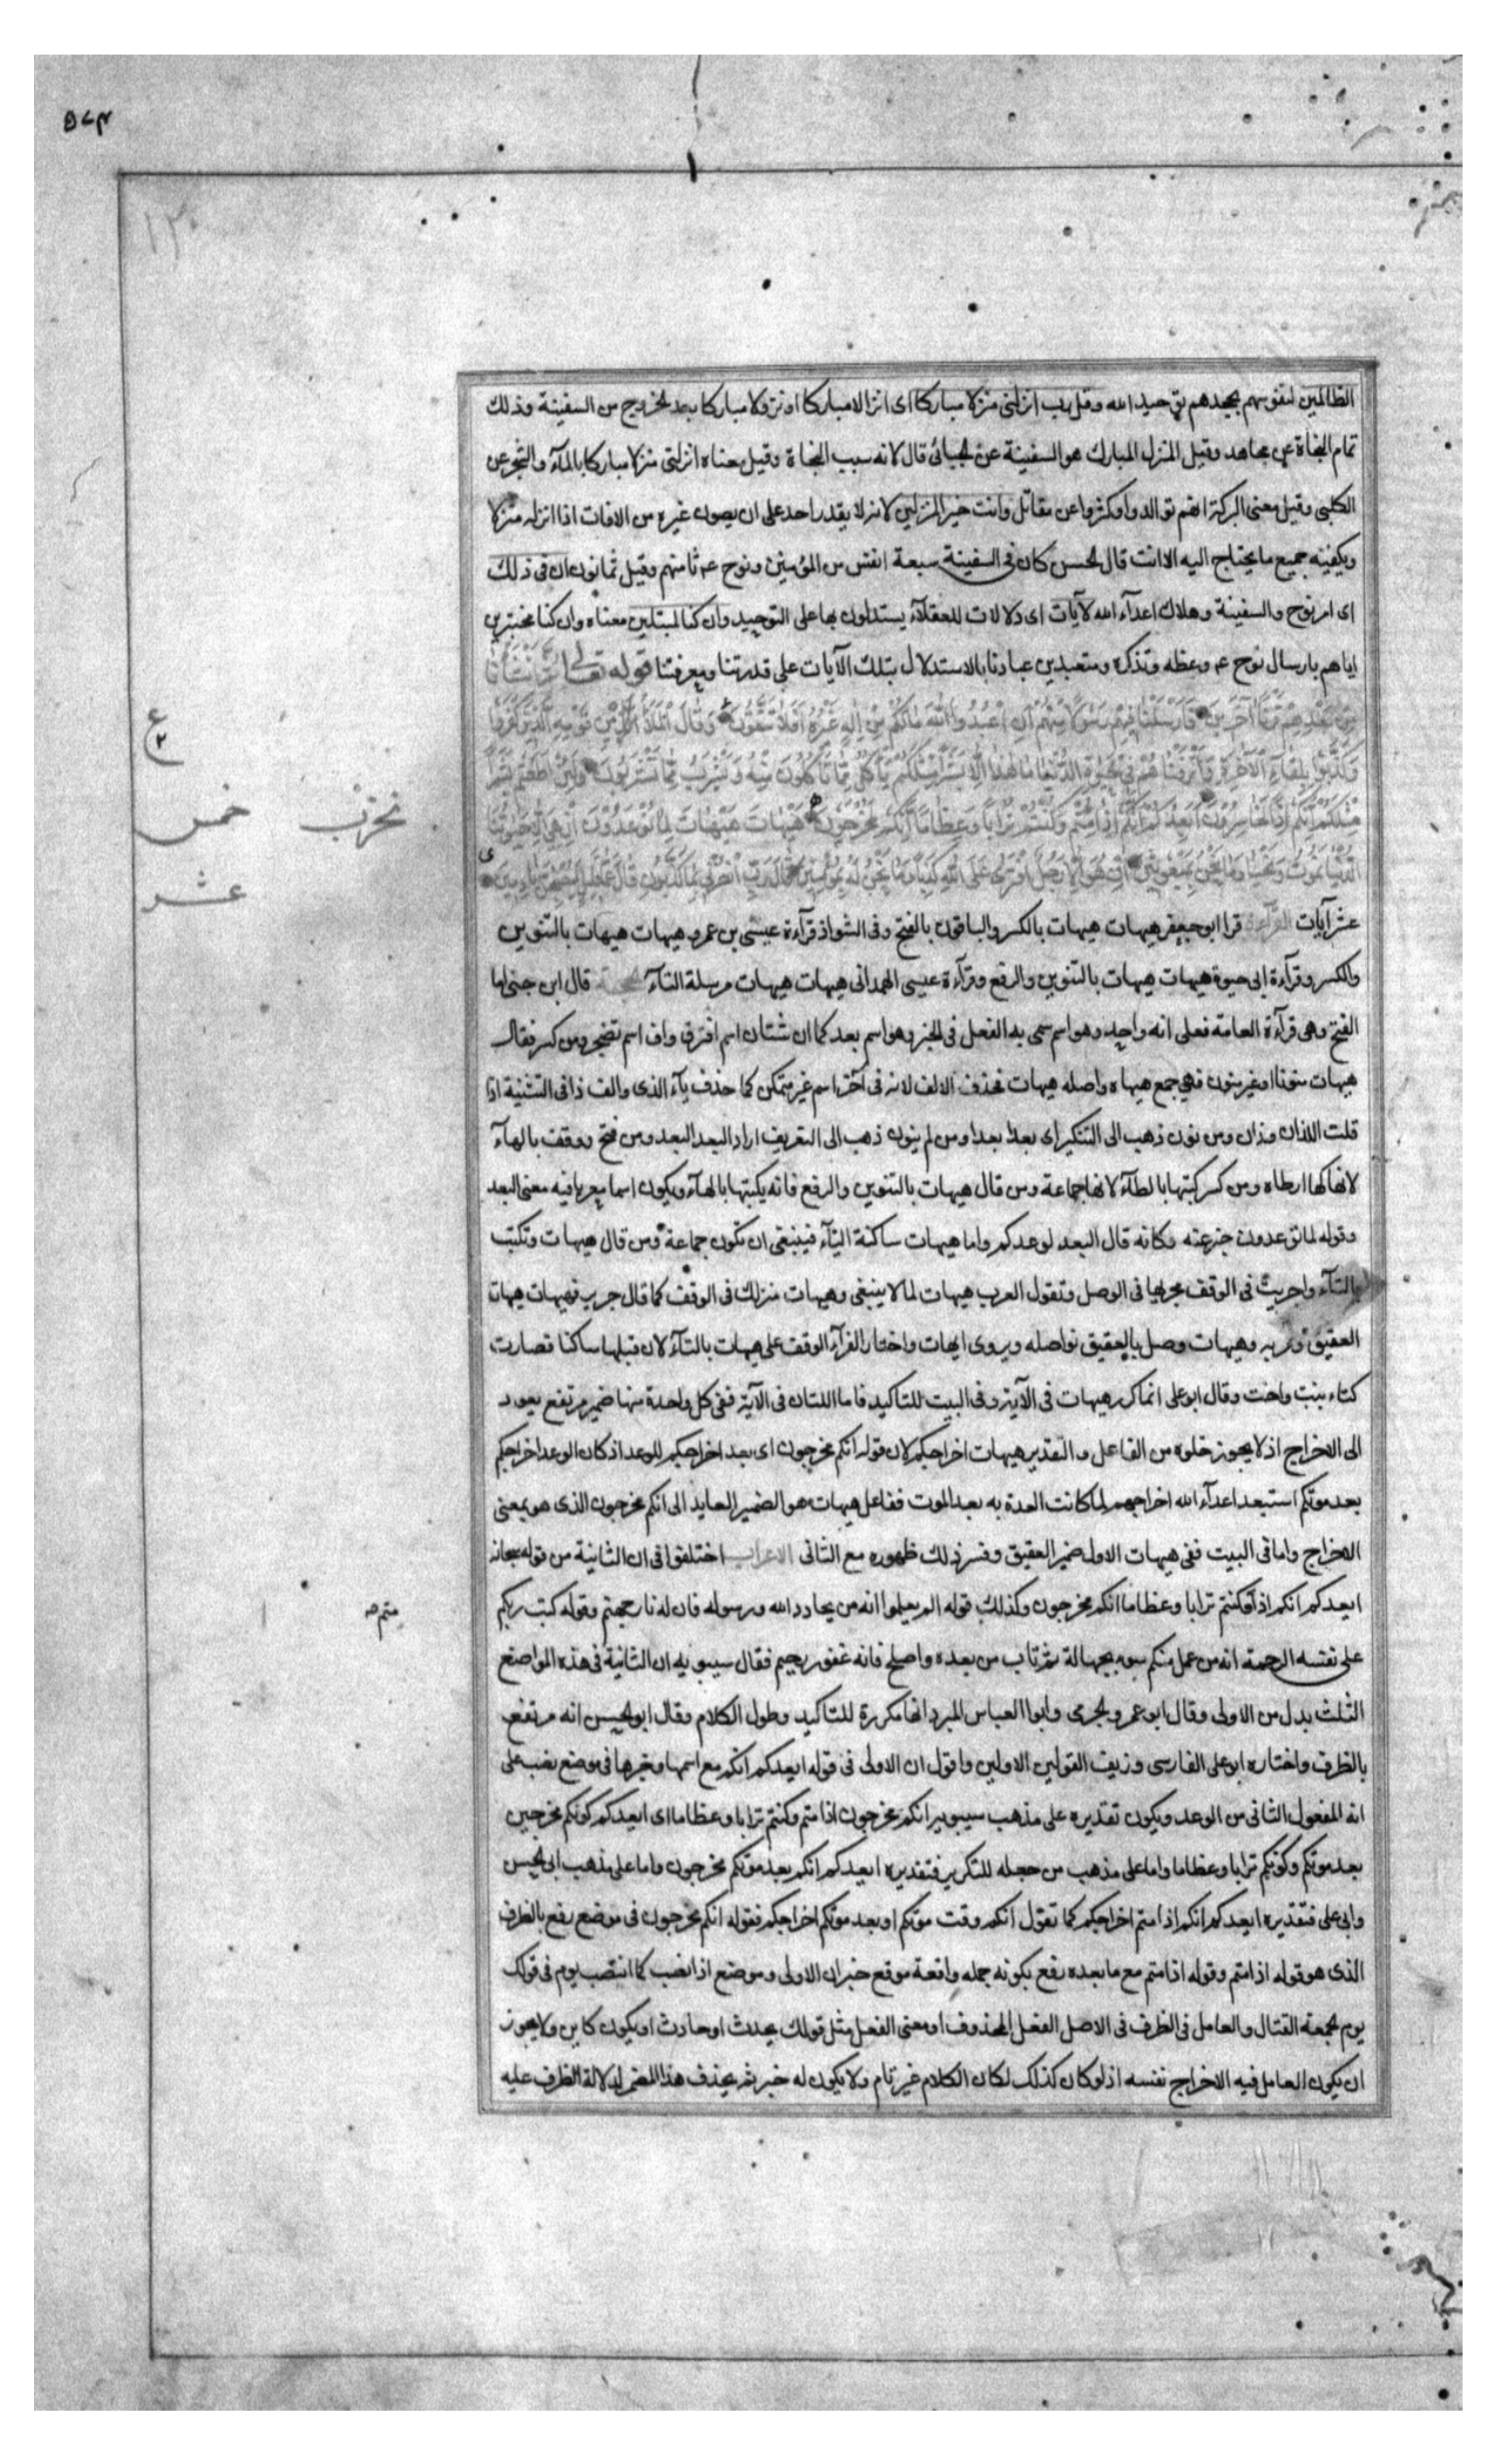 ٥٧٣
الظالمين لنفوسهم بجحدهم توحيد الله وقل رب انزلنى منزلا مباركا اى انزالا مباركا او نزولا مباركا بعد الخروج من السفينة وذلك
تمام النجاة عن مجاهد وقيل المنزل المبارك هو السفينة عن الجبائى قال لانه سبب النجاة وقيل معناه انزلنى منزلا مباركا بالمآء والشجر عن
الكلبى وقيل معنى البركة انهم توالدوا وكثروا عن مقاتل وانت خير المنزلين لانه لا يقدر احد على ان يصون غيره من الافات اذا انزله منزلا
ويكفيه جميع ما يحتاج اليه الا انت قال الحسن كان فى السفينة سبعة انفس من المؤمنين ونوح عم ثامنهم وقيل ثمانون ان فى ذلك
اى امر نوح والسفينة وهلاك اعدآء الله لآيات اى دلالات للعقلآء يستدلون بها على التوحيد وان كنا لمبتلين معناه وان كنا مختبرين
اياهم بارسال نوح عم ووعظه وتذكره ومتعبدين عبادنا بالاستدلال بتلك الآيات على قدرتنا ومعرفتنا قوله تعالى ثُمَّ أَنْشَأْنَا
مِنْ بَعْدِهِمْ قَرْنًا آخَرِينَ فَأَرْسَلْنَا فِيهِمْ رَسُولًا مِنْهُمْ أَنِ اعْبُدُوا اللَّهَ مَا لَكُمْ مِنْ إِلَهٍ غَيْرُهُ أَفَلَا تَتَّقُونَ وَقَالَ الْمَلَأُ مِنْ قَوْمِهِ الَّذِينَ كَفَرُوا
وَكَذَّبُوا بِلِقَاءِ الْآخِرَةِ وَأَتْرَفْنَاهُمْ فِي الْحَيَوةِ الدُّنْيَا مَا هَذَا إِلَّا بَشَرٌ مِثْلُكُمْ يَأْكُلُ مِمَّا تَأْكُلُونَ مِنْهُ وَيَشْرَبُ مِمَّا تَشْرَبُونَ وَلَئِنْ أَطَعْتُمْ بَشَرًا
مِثْلَكُمْ إِنَّكُمْ إِذًا لَخَاسِرُونَ أَيَعِدُكُمْ أَنَّكُمْ إِذَا مِتُّمْ وَكُنْتُمْ تُرَابًا وَعِظَامًا أَنَّكُمْ مُخْرَجُونَ هَيْهَاتَ هَيْهَاتَ لِمَا تُوعَدُونَ إِنْ هِيَ إِلَّا حَيَاتُنَا
الدُّنْيَا نَمُوتُ وَنَحْيَا وَمَا نَحْنُ بِمَبْعُوثِينَ إِنْ هُوَ إِلَّا رَجُلٌ افْتَرَى عَلَى اللَّهِ كَذِبًا وَمَا نَحْنُ لَهُ بِمُؤْمِنِينَ قَالَ رَبِّ انْصُرْنِي بِمَا كَذَّبُونِ قَالَ عَمَّا قَلِيلٍ لَيُصْبِحُنَّ نَادِمِينَ
عشر آيات القرآءة قرا ابو جعفر هيهات هيهات بالكسر والباقون بالفتح وفى الشواذ قرآءة عيسى بن عمر وهيهات هيهات بالتنوين
والكسر وقرآءة ابى حيوة هيهات هيهات بالتنوين والرفع وقرآءة عيسى الهمدانى هيهات هيهات مرسلة التآء الحجة قال ابن جنى اما
الفتح وهى قرآءة العامة فعلى انه واحد وهو اسم سمى به الفعل فى الخبر وهو اسم بعد كما ان شتان اسم افترق واف اسم تضجر ومن كسر فقال
هيهات منونا او غير منون فهى جمع هيهاه واصله هيهات فحذف الالف لانه فى آخر اسم غير متمكن كما حذف يآء الذى والف ذا فى التثنية اذا
قلت اللذان وذان ومن نون ذهب الى التنكير اى بعدا بعدا ومن لم ينون ذهب الى التعريف اراد البعد البعد ومن فتح ووقف بالهآء
لانها كهآء ارطاه ومن كسر كتبها بالطآء لانها جماعة ومن قال هيهات بالتنوين والرفع فانه يكتبها بالهآء ويكون اسما معربا فيه معنى البعد
وقوله لما توعدون خبر عنه وكانه قال البعد لوعدكم واما هيهات ساكنة التآء فينبغى ان تكون جماعة ومن قال هيهات وتكتب
بالتآء واجريت فى الوقف مجراها فى الوصل وتقول العرب هيهات لما لا ينبغى وهيهات منزلك فى الوقف كما قال جرير فهيهات هيهات
العقيق وتربه وهيهات وصل بالعقيق نواصله ويروى ايهات واختار الفرآء الوقف على هيهات بالتآء لان قبلها ساكنا فصارت
كتاء بنت واخت وقال ابو على انما كرر هيهات فى الآية وفى البيت للتاكيد فاما اللتان فى الآية ففى كل واحدة منها ضمير مرتفع يعود
الى الاخراج اذ لا يجوز خلوه من الفاعل والتقدير هيهات اخراجكم لان قوله انكم مخرجون اى بعد اخراجكم للوعد اذ كان الوعد اخراجكم
بعد موتكم استبعد اعدآء الله اخراجهم لما كانت العدة به بعد الموت ففاعل هيهات هو الضمير العايد الى انكم مخرجون الذى هو بمعنى
الاخراج واما فى البيت ففى هيهات الاول ضمير العقيق وفسر ذلك ظهوره مع الثانى الاعراب اختلفوا فى ان الثانية من قوله سبحانه
ايعدكم انكم اذا وكنتم ترابا وعظاما انكم مخرجون وكذلك قوله الم يعلموا انه من يحادد الله ورسوله فان له نار جهنم وقوله كتب ربكم
على نفسه الرحمة انه من عمل منكم سوء بجهالة ثم تاب من بعده واصلح فانه غفور رحيم فقال سيبويه ان الثانية فى هذه المواضع
الثلث بدل من الاولى وقال ابو عمرو الجرمى وابوا العباس المبرد انها مكررة للتاكيد وطول الكلام وقال ابو الحسن انه مرتفع
بالظرف واختاره ابو على الفارسى وزيف القولين الاولين واقول ان الاولى فى قوله ايعدكم انكم مع اسمها وخبرها فى موضع نصب على
انه المفعول الثانى من الوعد ويكون تقديره على مذهب سيبويه انكم مخرجون اذا متم وكنتم ترابا وعظاما اى ايعدكم كونكم مخرجين
بعد موتكم وكونكم ترابا وعظاما واما على مذهب من جعله للتكرير فتقديره ايعدكم انكم بعد موتكم مخرجون واما على مذهب ابى الحسن
وابى على فتقديره ايعدكم انكم اذا متم اخراجكم كما تقول انكم وقت موتكم او بعد موتكم اخراجكم فقوله انكم مخرجون فى موضع رفع بالظرف
الذى هو قوله اذا متم وقوله اذا متم مع ما بعده رفع بكونه جمله واقعة موقع خبر ان الاولى وموضع اذا نصب كما انتصب يوم فى قولك
يوم الجمعة القتال والعامل فى الظرف فى الاصل الفعل المحذوف او معنى الفعل مثل قولك يحدث او حادث او يكون كاين ولا يجوز
ان يكون العامل فيه الاخراج نفسه اذ لو كان كذلك لكان الكلام غير تام ولا يكون له خبر ثم يحذف هذا المضمر لدلالة الظرف عليه
ع
٢
خمس
عشر
متم صح